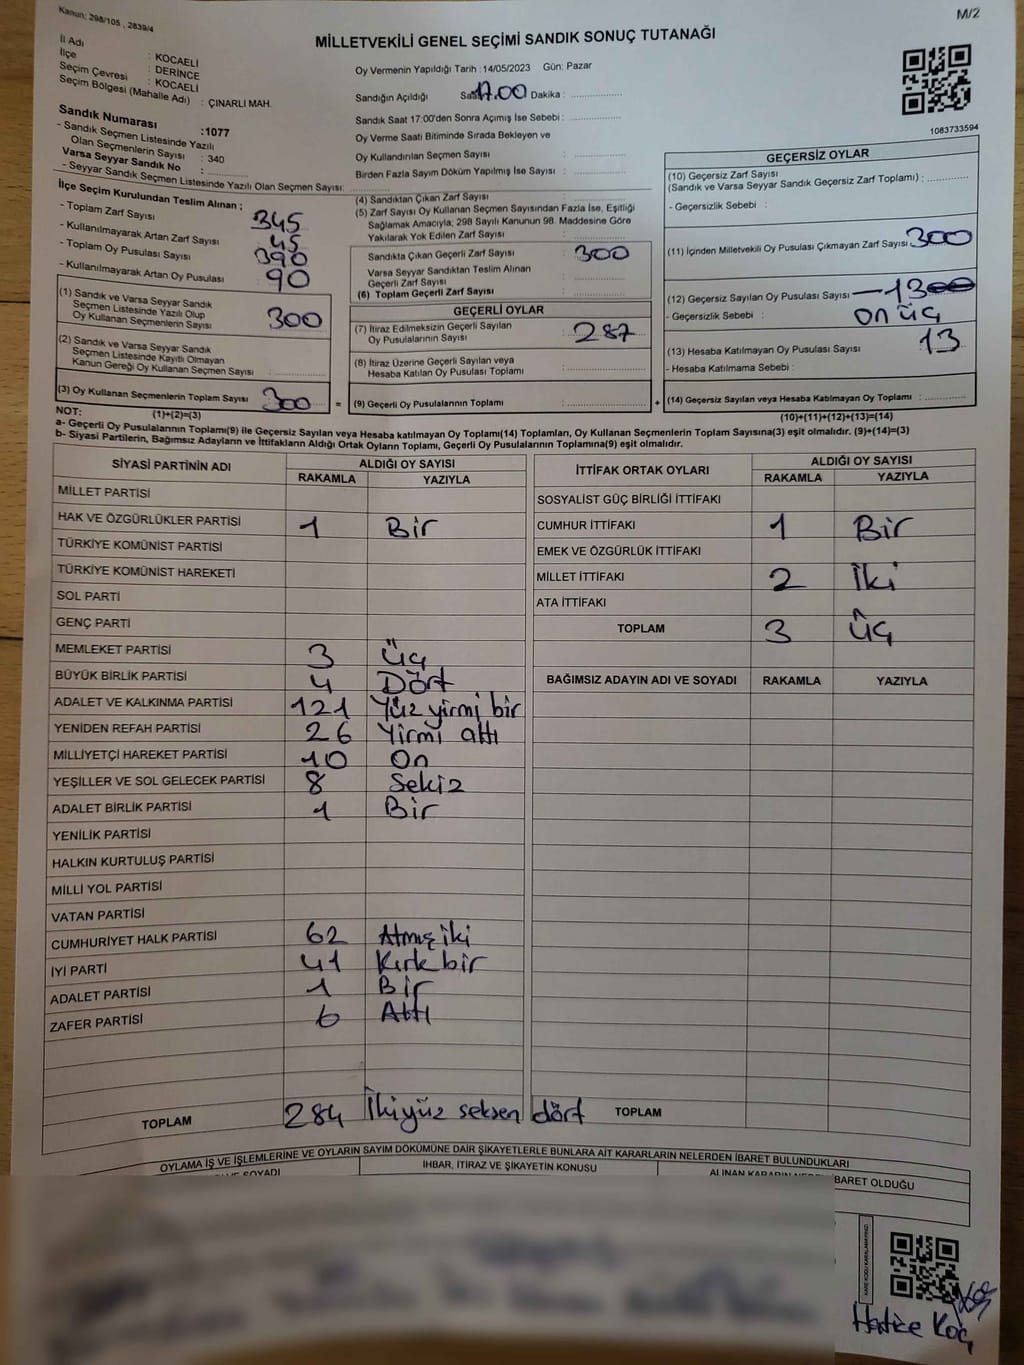 Kanun: 298/105 , 2839/4
M/2
MİLLETVEKİLİ GENEL SEÇİMİ SANDIK SONUÇ TUTANAĞI
İl Adı : KOCAELİ
İlçe : DERİNCE
Seçim Çevresi : KOCAELİ
Seçim Bölgesi (Mahalle Adı) : ÇINARLI MAH.
Sandık Numarası :1077
- Sandık Seçmen Listesinde Yazılı
Olan Seçmenlerin Sayısı : 340
Varsa Seyyar Sandık No :
- Seyyar Sandık Seçmen Listesinde Yazılı Olan Seçmen Sayısı:
Oy Vermenin Yapıldığı Tarih :14/05/2023 Gün: Pazar
Sandığın Açıldığı Saat 17.00 Dakika :
Sandık Saat 17:00'den Sonra Açımış İse Sebebi :
Oy Verme Saati Bitiminde Sırada Bekleyen ve
Oy Kullandırılan Seçmen Sayısı :
Birden Fazla Sayım Döküm Yapılmış İse Sayısı :
1083733594
İlçe Seçim Kurulundan Teslim Alınan ;
- Toplam Zarf Sayısı : 345
- Kullanılmayarak Artan Zarf Sayısı : 45
- Toplam Oy Pusulası Sayısı : 390
- Kullanılmayarak Artan Oy Pusulası : 90
(1) Sandık ve Varsa Seyyar Sandık
Seçmen Listesinde Yazılı Olup
Oy Kullanan Seçmenlerin Sayısı : 300
(2) Sandık ve Varsa Seyyar Sandık
Seçmen Listesinde Kayıtlı Olmayan
Kanun Gereği Oy Kullanan Seçmen Sayısı :
(3) Oy Kullanan Seçmenlerin Toplam Sayısı 300 =
(1)+(2)=(3)
(4) Sandıktan Çıkan Zarf Sayısı :
(5) Zarf Sayısı Oy Kullanan Seçmen Sayısından Fazla İse, Eşitliği
Sağlamak Amacıyla, 298 Sayılı Kanunun 98. Maddesine Göre
Yakılarak Yok Edilen Zarf Sayısı :
Sandıkta Çıkan Geçerli Zarf Sayısı : 300
Varsa Seyyar Sandıktan Teslim Alınan
Geçerli Zarf Sayısı :
(6) Toplam Geçerli Zarf Sayısı :
GEÇERLİ OYLAR
(7) İtiraz Edilmeksizin Geçerli Sayılan
Oy Pusulalarının Sayısı : 287
(8) İtiraz Üzerine Geçerli Sayılan veya
Hesaba Katılan Oy Pusulası Toplamı :
(9) Geçerli Oy Pusulalarının Toplamı : +
GEÇERSİZ OYLAR
(10) Geçersiz Zarf Sayısı
(Sandık ve Varsa Seyyar Sandık Geçersiz Zarf Toplamı) :
- Geçersizlik Sebebi :
(11) İçinden Milletvekili Oy Pusulası Çıkmayan Zarf Sayısı 300
(12) Geçersiz Sayılan Oy Pusulası Sayısı 13
- Geçersizlik Sebebi : on üç
(13) Hesaba Katılmayan Oy Pusulası Sayısı : 13
- Hesaba Katılmama Sebebi :
(14) Geçersiz Sayılan veya Hesaba Katılmayan Oy Toplamı :
(10)+(11)+(12)+(13)=(14)
NOT:
a- Geçerli Oy Pusulalarının Toplamı(9) ile Geçersiz Sayılan veya Hesaba katılmayan Oy Toplamı(14) Toplamları, Oy Kullanan Seçmenlerin Toplam Sayısına(3) eşit olmalıdır. (9)+(14)=(3)
b- Siyasi Partilerin, Bağımsız Adayların ve İttifakların Aldığı Ortak Oyların Toplamı, Geçerli Oy Pusulalarının Toplamına(9) eşit olmalıdır.
SİYASİ PARTİNİN ADI ALDIĞI OY SAYISI
RAKAMLA YAZIYLA
MİLLET PARTİSİ
HAK VE ÖZGÜRLÜKLER PARTİSİ 1 Bir
TÜRKİYE KOMÜNİST PARTİSİ
TÜRKİYE KOMÜNİST HAREKETİ
SOL PARTİ
GENÇ PARTİ
MEMLEKET PARTİSİ 3 üç
BÜYÜK BİRLİK PARTİSİ 4 Dört
ADALET VE KALKINMA PARTİSİ 121 Yüz yirmi bir
YENİDEN REFAH PARTİSİ 26 Yirmi altı
MİLLİYETÇİ HAREKET PARTİSİ 10 On
YEŞİLLER VE SOL GELECEK PARTİSİ 8 Sekiz
ADALET BİRLİK PARTİSİ 1 Bir
YENİLİK PARTİSİ
HALKIN KURTULUŞ PARTİSİ
MİLLİ YOL PARTİSİ
VATAN PARTİSİ
CUMHURİYET HALK PARTİSİ 62 Atmış iki
İYİ PARTİ 41 Kırk bir
ADALET PARTİSİ 1 Bir
ZAFER PARTİSİ 6 Altı
TOPLAM 284 İkiyüz seksen dört
İTTİFAK ORTAK OYLARI ALDIĞI OY SAYISI
RAKAMLA YAZIYLA
SOSYALİST GÜÇ BİRLİĞİ İTTİFAKI
CUMHUR İTTİFAKI 1 Bir
EMEK VE ÖZGÜRLÜK İTTİFAKI
MİLLET İTTİFAKI 2 İki
ATA İTTİFAKI
TOPLAM 3 üç
BAĞIMSIZ ADAYIN ADI VE SOYADI RAKAMLA YAZIYLA
TOPLAM
OYLAMA İŞ VE İŞLEMLERİNE VE OYLARIN SAYIM DÖKÜMÜNE DAİR ŞİKAYETLERLE BUNLARA AİT KARARLARIN NELERDEN İBARET BULUNDUKLARI
SOYADI İHBAR, İTİRAZ VE ŞİKAYETİN KONUSU ALINAN KARARIN İBARET OLDUĞU
Hatice Koç